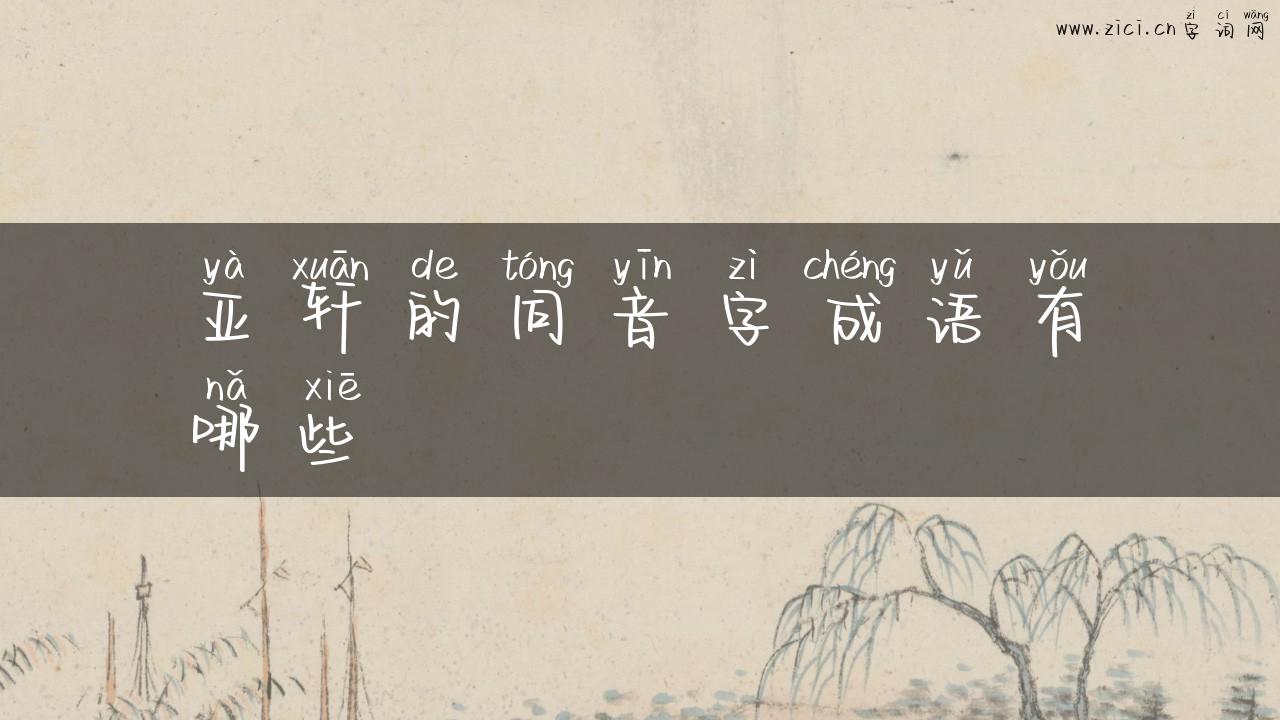 zì cí wǎng
www.zici.cn 字 词 网
yà xuān de tóng yīn zì chéng yǔ yǒu
亚 轩 的 同 音 字 成 语 有
nǎ xiē
哪 些